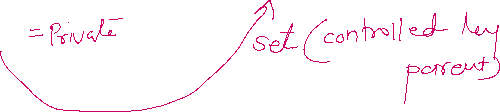 = Private
set (controlled by
parent)